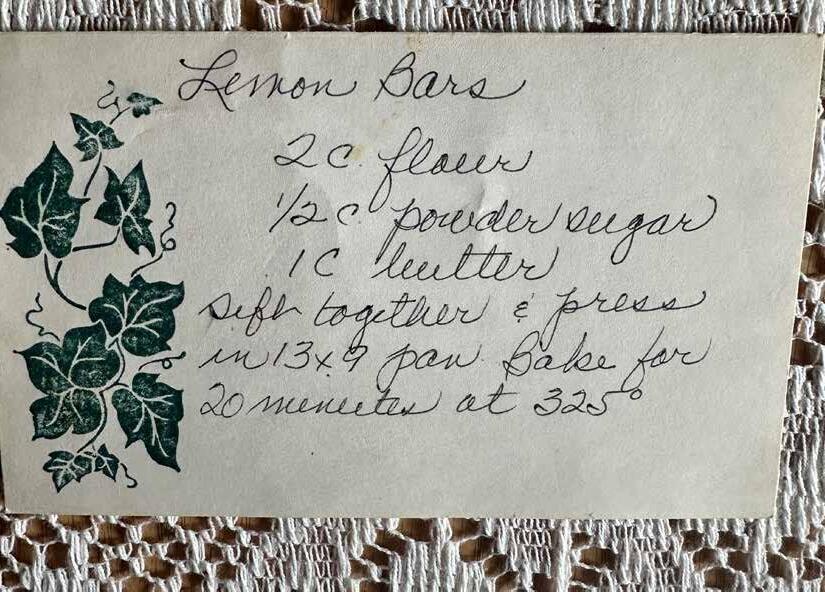 Lemon Bars
2 c. flour
1/2 c. powder sugar
1 C butter
Sift together & press
in 13x9 pan. Bake for
20 minutes at 325°